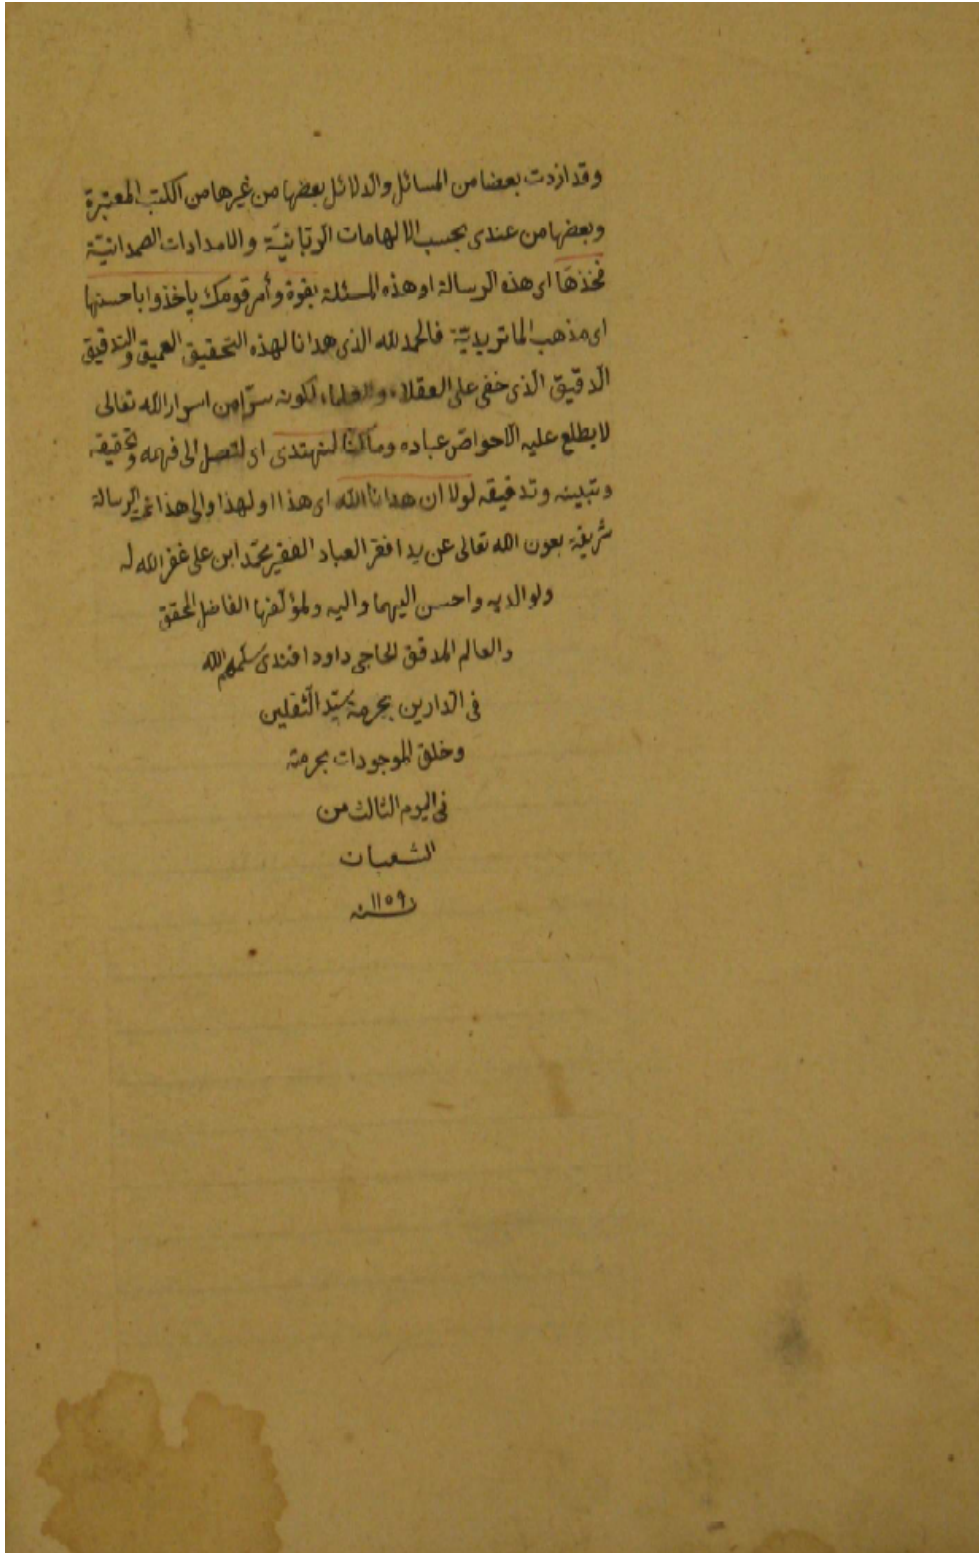 وقد ازدت بعضا من المسائل والدلائل بعضها من غيرها من الكتب المعتبرة
وبعضها من عندى بحسب الالهامات الربانيّة والامدادات الصمدانيّة
فخذها اى هذه الرسالة او هذه المسئلة بقوة وأمر قومك ياخذوا باحسنها
اى مذهب الماتريديّة فالحمد لله الذى هدانا لهذه التحقيق العميق والتدقيق
الدقيق الذى خفى على العقلاء والعلماء لكونه سرّا من اسرار الله تعالى
لا يطلع عليه الا خواص عباده وما كنا لنهتدى اى لنصل الى فهمه وتحقيقه
وتبينه وتدقيقه لولا ان هدانا الله اى هذا او لهذا والى هذا تمّ الرسالة
شريفة بعون الله تعالى عن يد افقر العباد الفقير محمّد ابن على غفر الله له
ولوالديه واحسن اليهما واليه ولمؤلفها الفاضل المحقق
والعالم المدقق الحاجى داود افندى سلمهم الله
فى الدارين بحرمة سيّد الثقلين
وخلق الموجودات بحرمته
فى اليوم الثالث من
الشعبان
سنه ١١٥٩